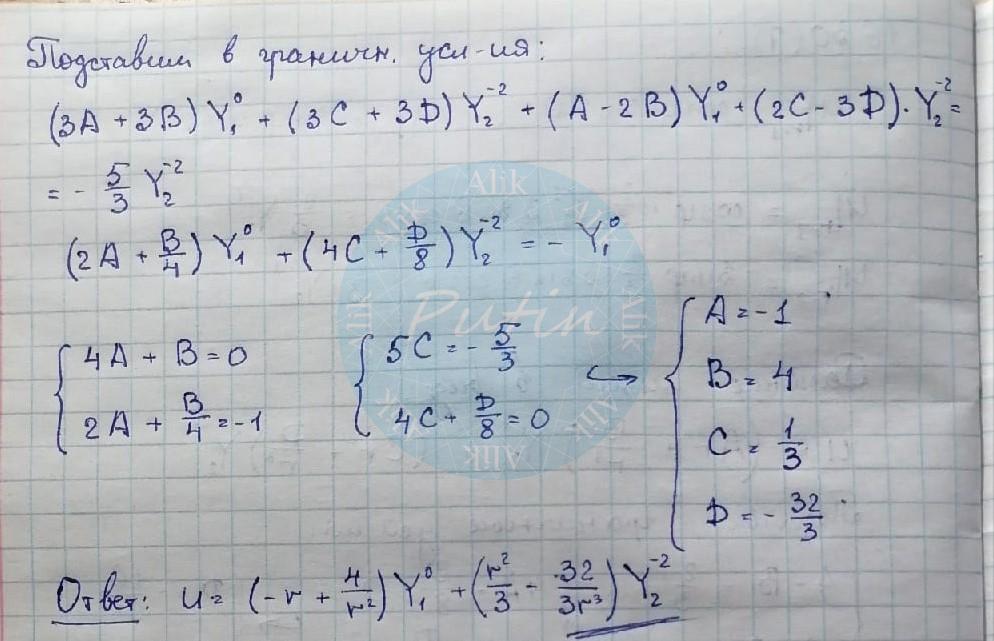 Подставим в граничн. усл-ия:
(3A + 3B) Y₁⁰ + (3C + 3D) Y₂⁻² + (A - 2B) Y₁⁰ + (2C - 3D) · Y₂⁻² =
= - 5/3 Y₂⁻²
(2A + B/4) Y₁⁰ + (4C + D/8) Y₂⁻² = - Y₁⁰
{ 4A + B = 0
2A + B/4 = -1
{ 5C = - 5/3
4C + D/8 = 0
↪ { A = -1
B = 4
C = 1/3
D = - 32/3
Ответ: u = (-r + 4/r²) Y₁⁰ + (r²/3 - 32/3r³) Y₂⁻²
Alik
Alik
Alik
Alik
Alik
Alik
Alik
Alik
Putin